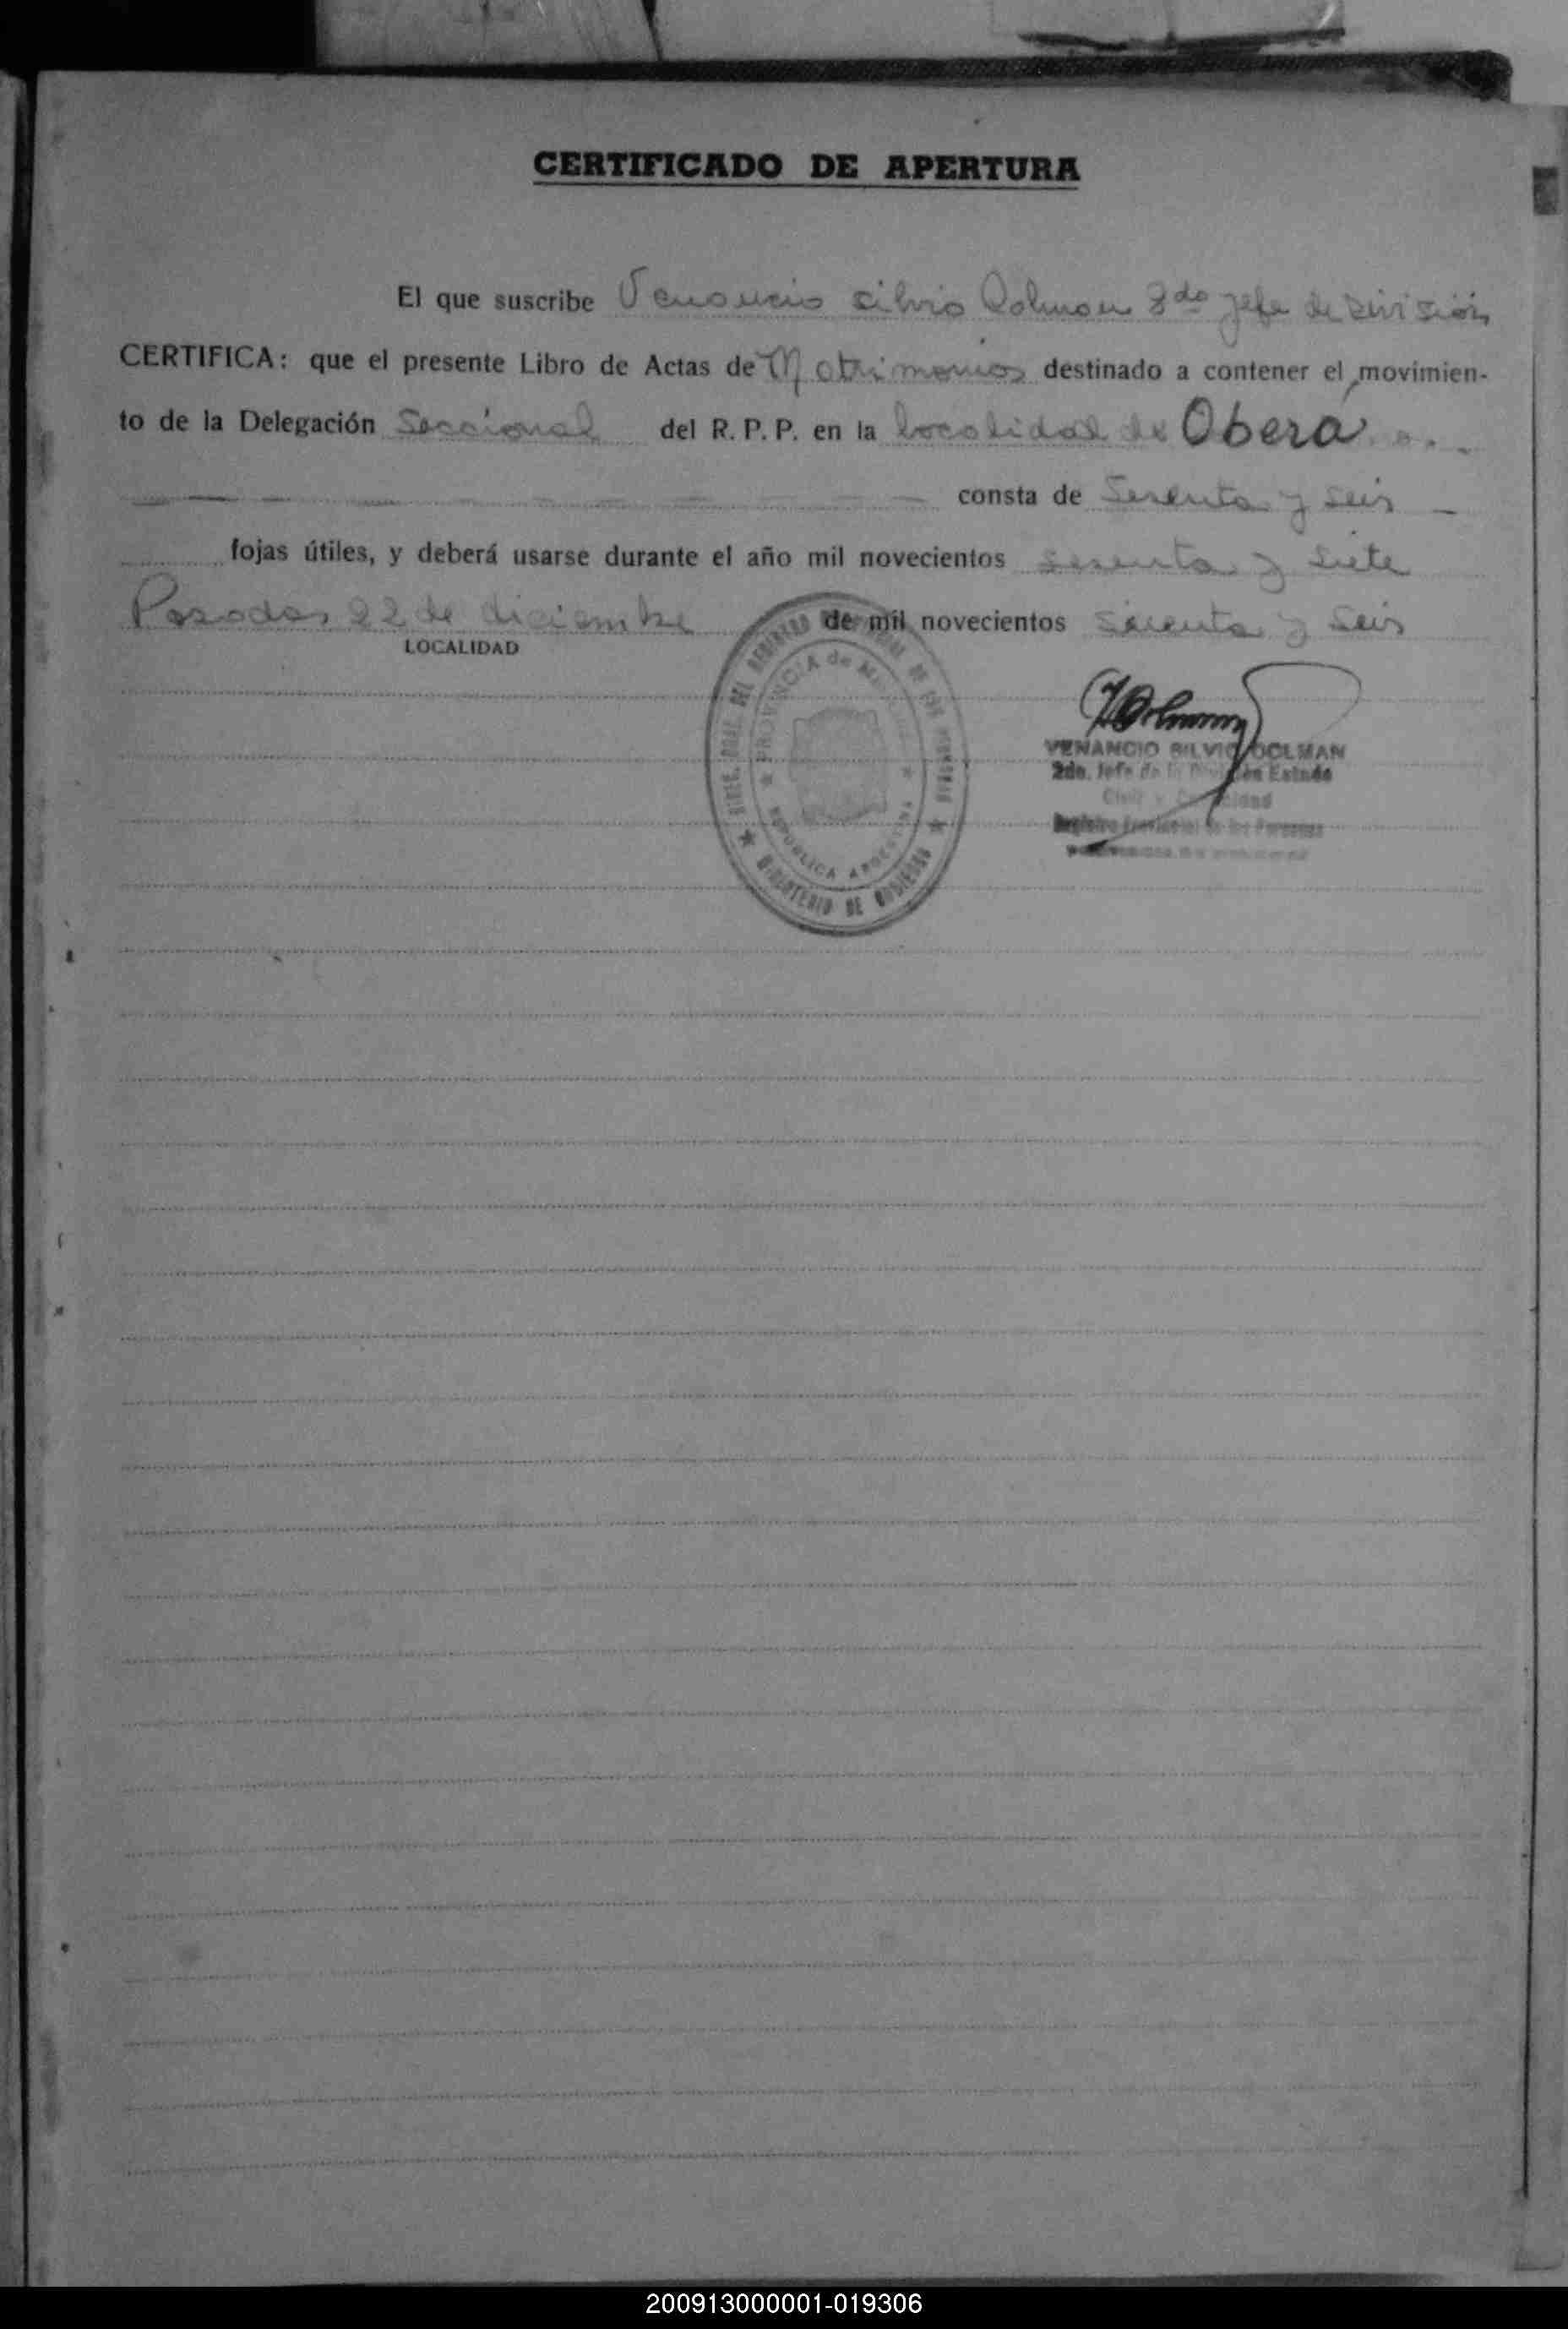 CERTIFICADO DE APERTURA
El que suscribe Venancio Silvio Dolman 2do Jefe de División
CERTIFICA: que el presente Libro de Actas de Matrimonios destinado a contener el movimien-
to de la Delegación Seccional del R. P. P. en la localidad de Oberá
consta de Sesenta y Seis
fojas útiles, y deberá usarse durante el año mil novecientos sesenta y siete
Posadas 22 de diciembre de mil novecientos sesenta y seis
LOCALIDAD
DEL REGISTRO DE LAS PERSONAS
PROVINCIA de
REPUBLICA ARGENTINA
MINISTERIO DE GOBIERNO
VENANCIO SILVIO DOLMAN
2do. Jefe de la División Estado
Civil y
Registro Provincial de las Personas
200913000001-019306